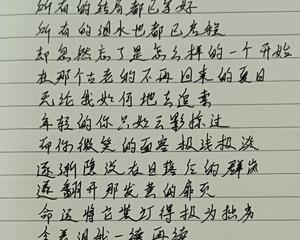 所有的结局都已写好
所有的泪水也都已启程
却忽然忘了是怎么样的一个开始
在那个古老的不再回来的夏日
无论我如何地去追索
年轻的你只如云影掠过
而你微笑的面容极浅极淡
逐渐隐没在日落后的群岚
遂翻开那发黄的扉页
命运将它装订得极为拙劣
含着泪我一读再读